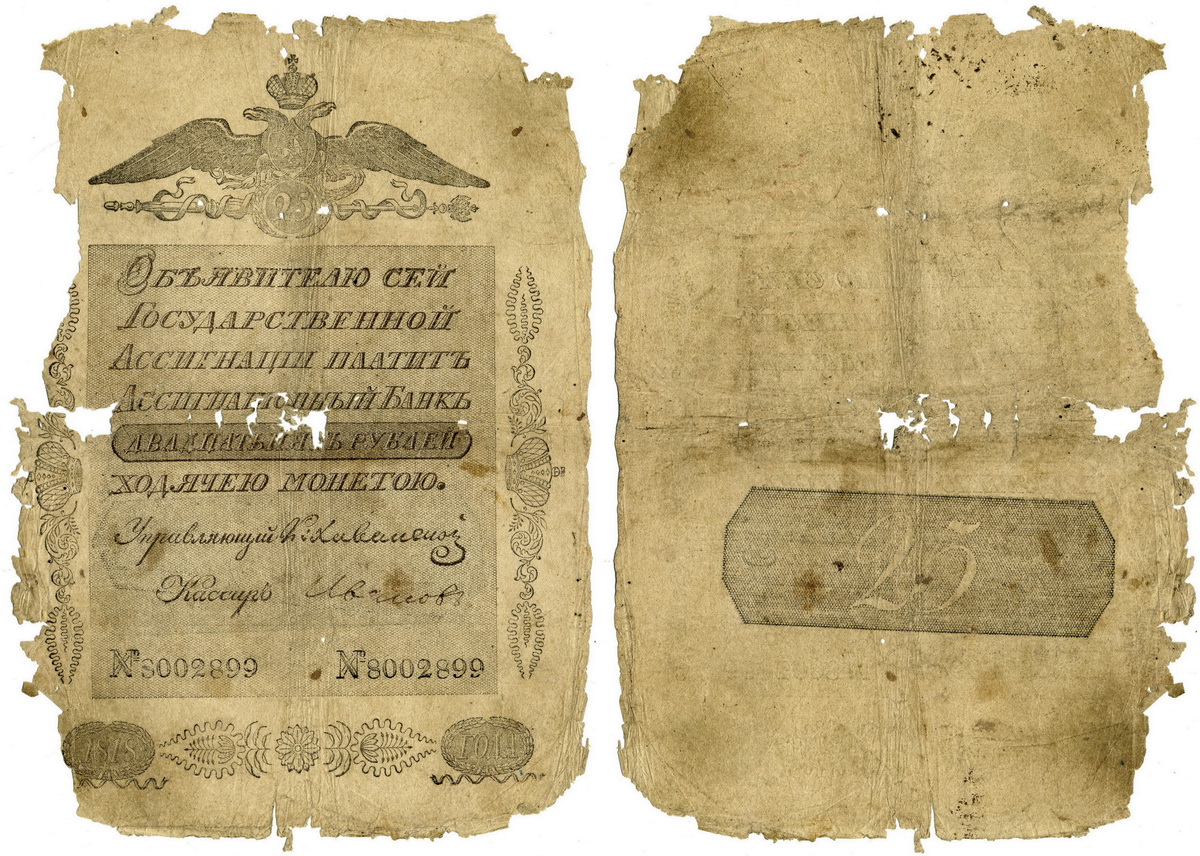 25
Объявителю сей
Государственной
Ассигнаціи платитъ
Ассигнаціонный Банкъ
двадцать пять рублей
ходячею монетою.
Управляющий К: Хованской
Кассиръ Ивановъ
№ 8002899 № 8002899
1818 года
25